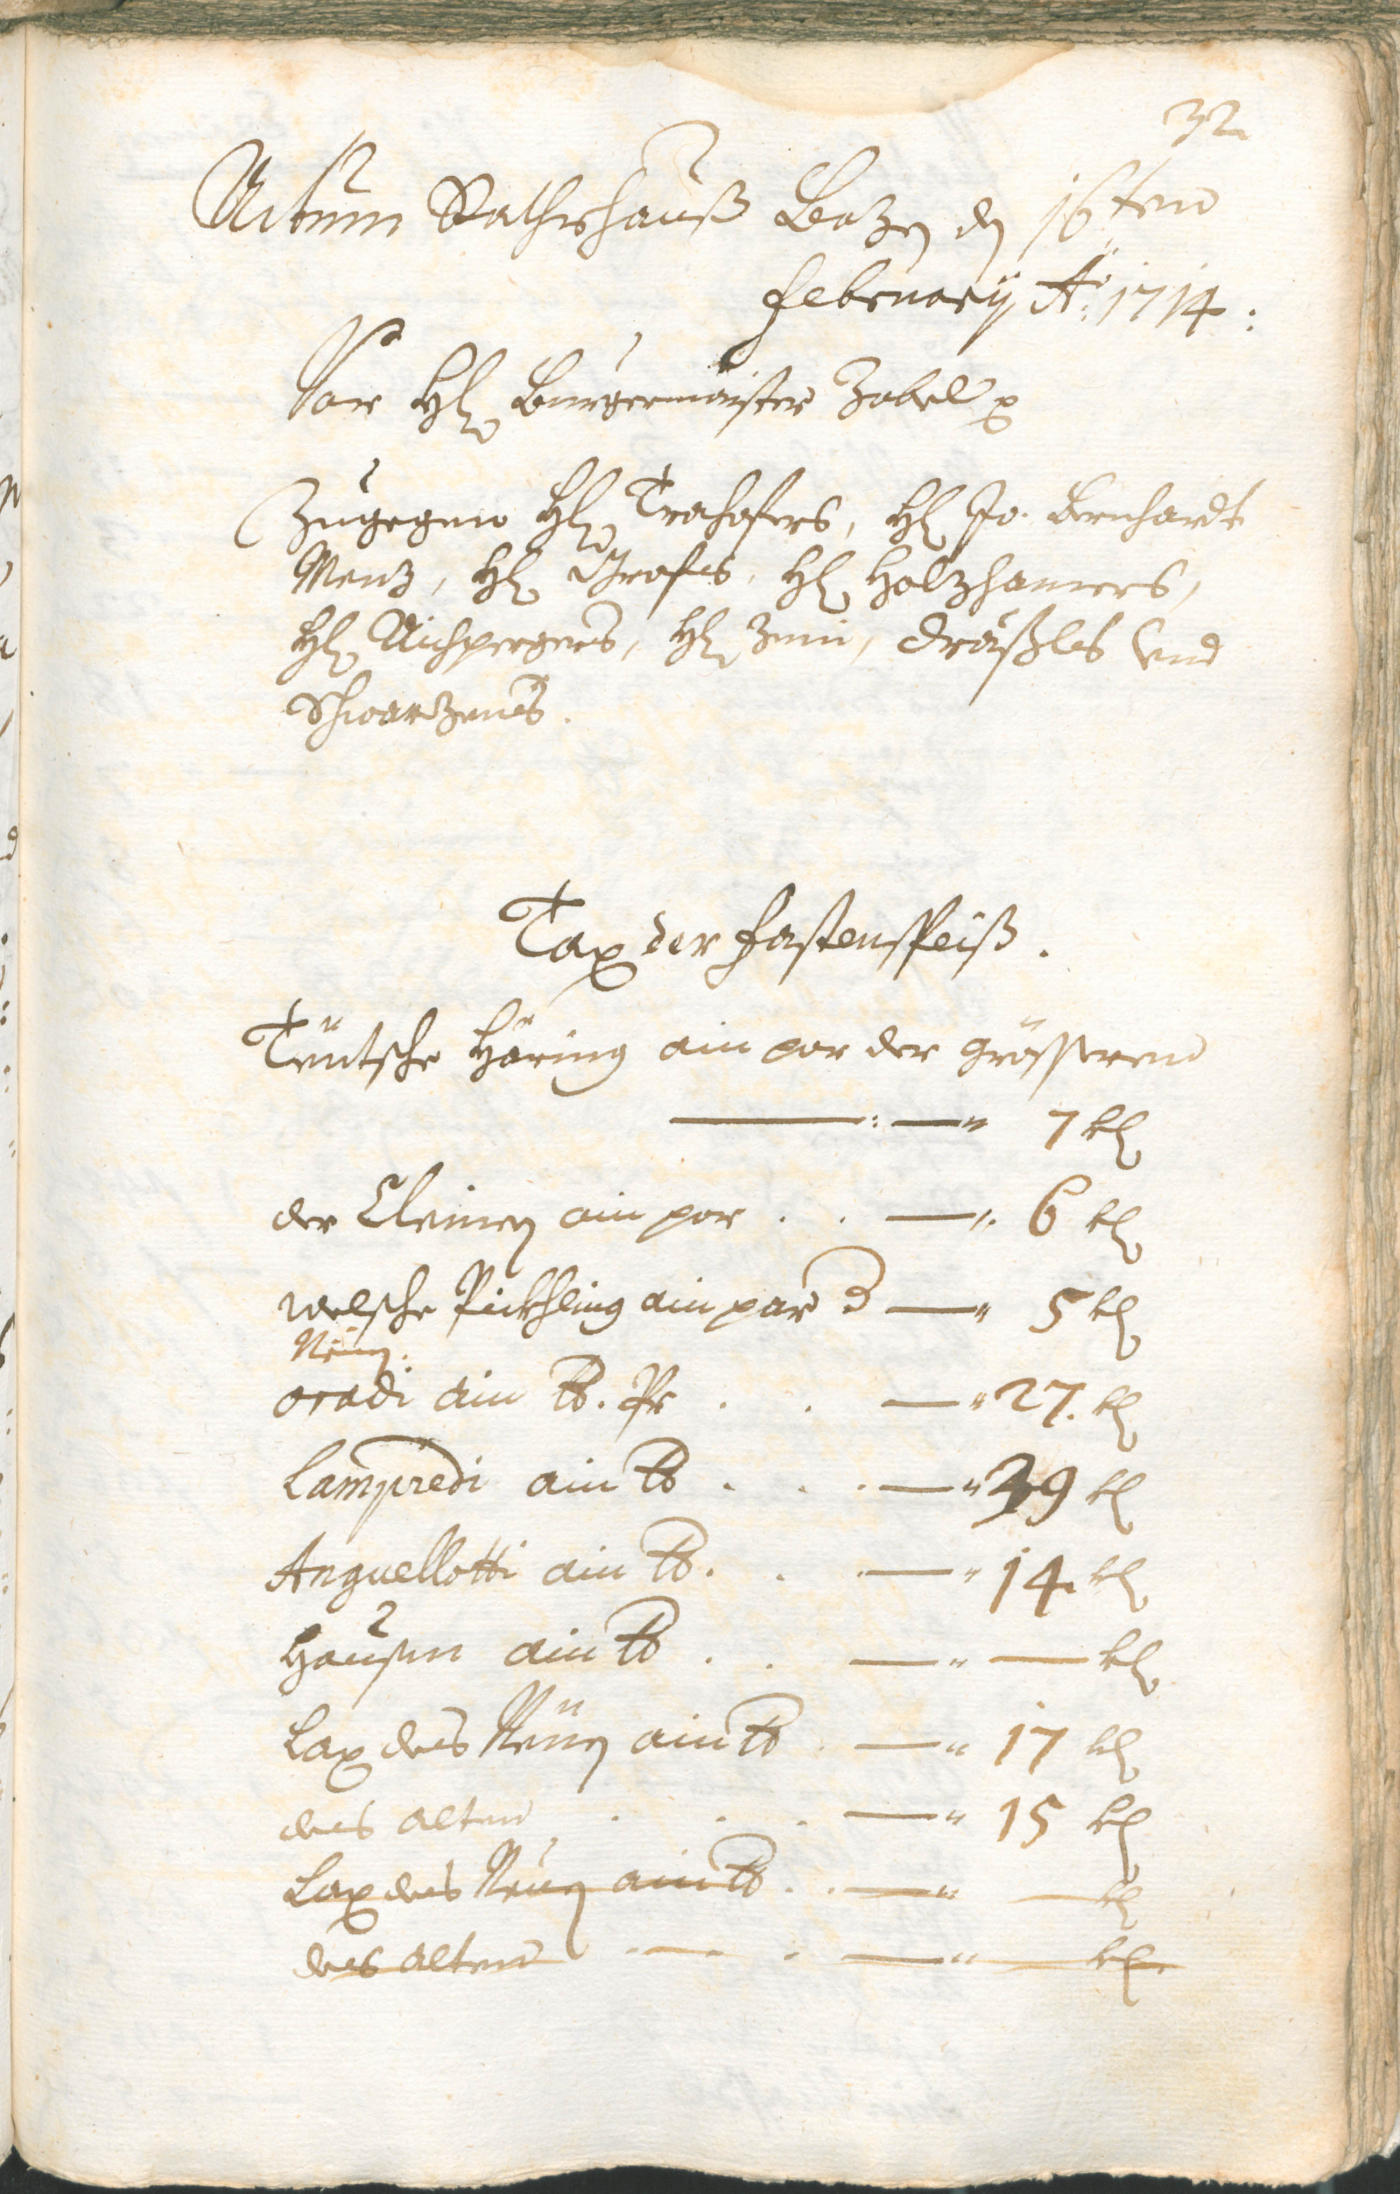 32
Actum Rathshauß Bozen den 16ten
february Aō: 1714:
Vor H: Burgermaister Zobel
Zugegen H: Trahofers, H: Jo. Bernhardt
Menz, H: Grafes, H: Holzhamers,
H: Aichpergers, H: Zeni, Dräxles und
Schwarzens.
Tax der fastenspeiß.
Teütsche Häring ain par der grösseren
7 kr
der Cleinen ain par . . — " 6 kr
welsche Pickhling ain par — " 5 kr
Neüe
oradi ain lb. Pr . . — " 27. kr
Lampredi ain lb . . . — " 39 kr
Anguellotti ain lb. . . — " 14. kr
Hausen ain lb . . — " — kr
Lax des Neüen ain lb . — " 17 kr
des alten . . . — " 15 kr
Lax des Neuen ain lb . . — " — kr
des alten . — . — " — kr